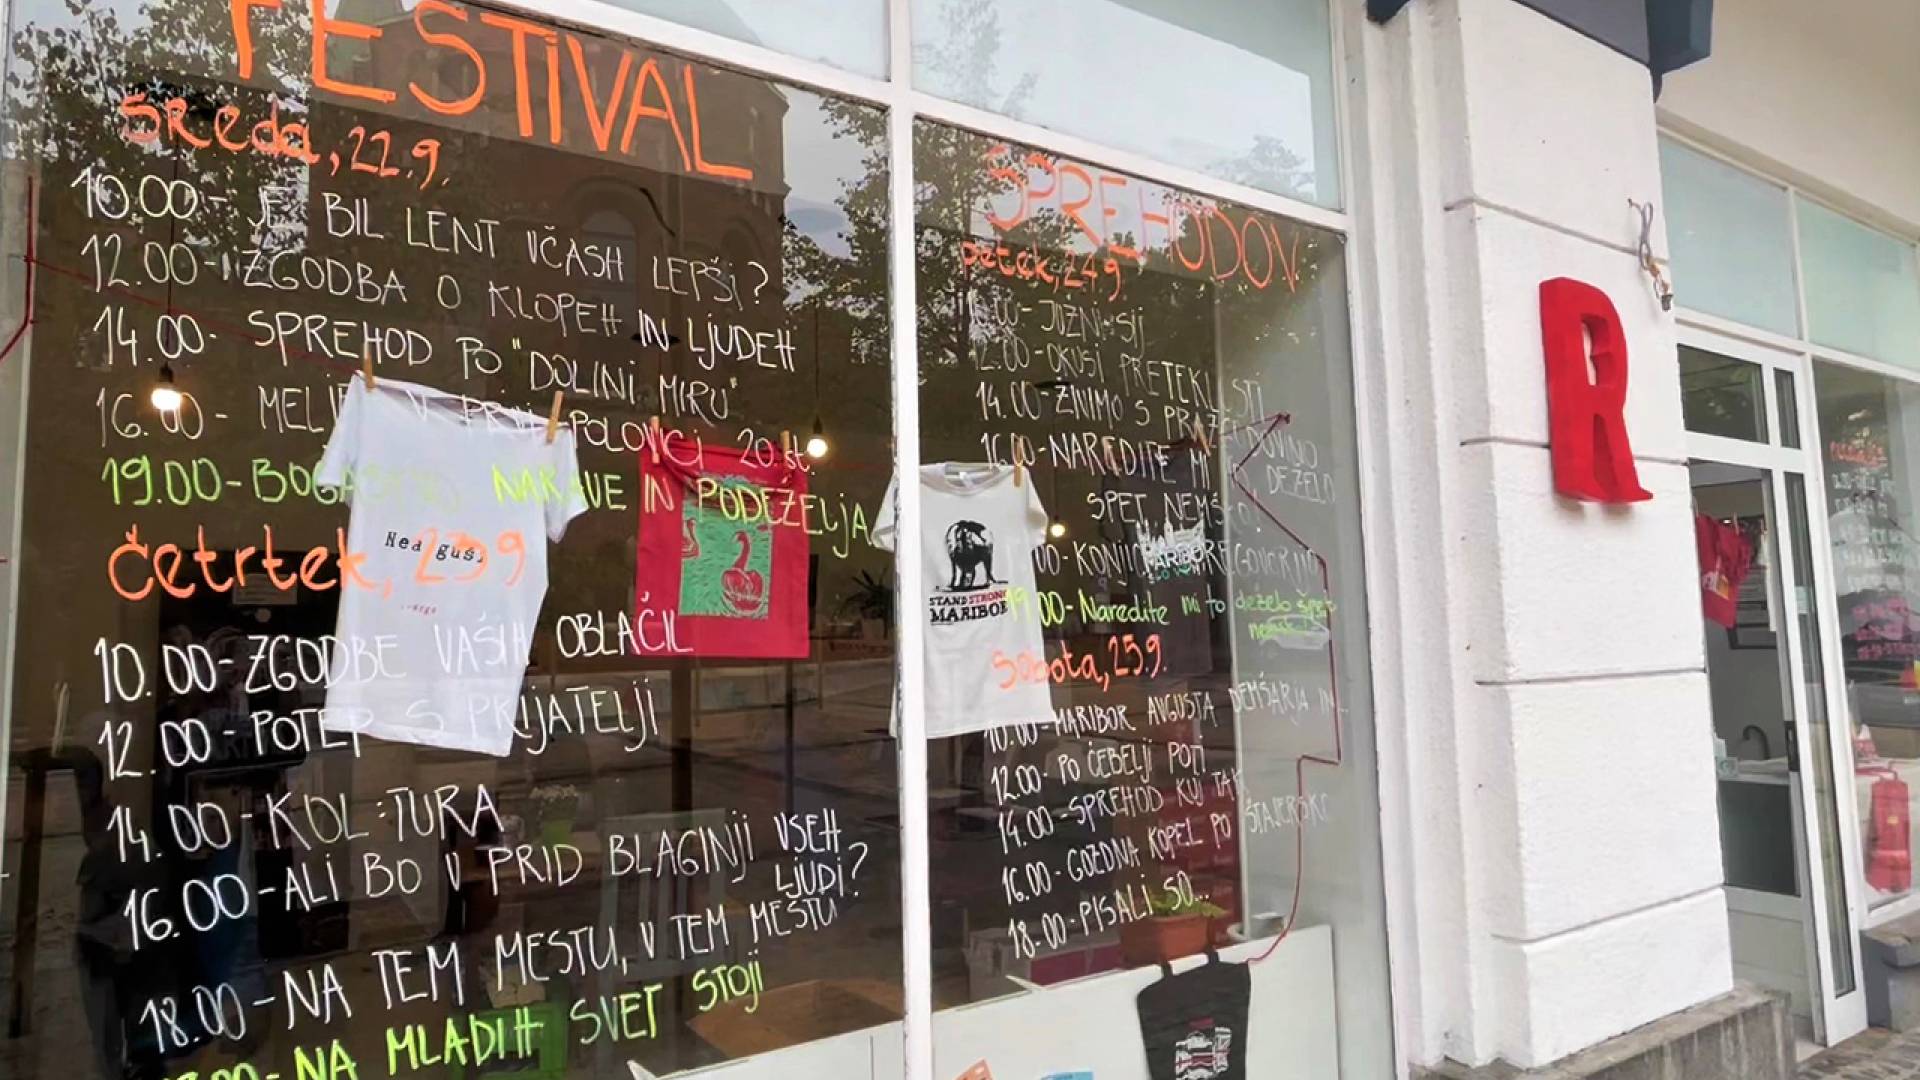 FESTIVAL
sreda, 22.9.
10.00- JE BIL LENT VČASIH LEPŠI?
12.00- ZGODBA O KLOPEH IN LJUDEH
14.00- SPREHOD PO "DOLINI MIRU"
16.00- V PRVI POLOVICI 20. st.
19.00- NARAVE IN PODEŽELJA
četrtek, 23.9
10.00- ZGODBE VAŠIH OBLAČIL
12.00- POTEP S PRIJATELJI
14.00- KOL:TURA
16.00- ALI BO V PRID BLAGINJI VSEH
LJUDI?
18.00- NA TEM MESTU, V TEM MESTU
NA MLADIH SVET STOJI
SPREHODOV
petek, 24.9.
JUŽNI SIJ
12.00- OKUSI PRETEKLOSTI
14.00- S
16.00- NAREDITE MI DEŽELO
SPET NEMŠKO!
19.00- Naredite mi to deželo spet
sobota, 25.9.
10.00- MARIBOR AVGUSTA DEMŠARJA IN
12.00- PO ČEBELJI POTI
14.00- SPREHOD KUJ TAK
16.00- GOZDNA KOPEL PO ŠTAJERSKO
18.00- PISALI SO...
STAND STRONG
MARIBOR
R